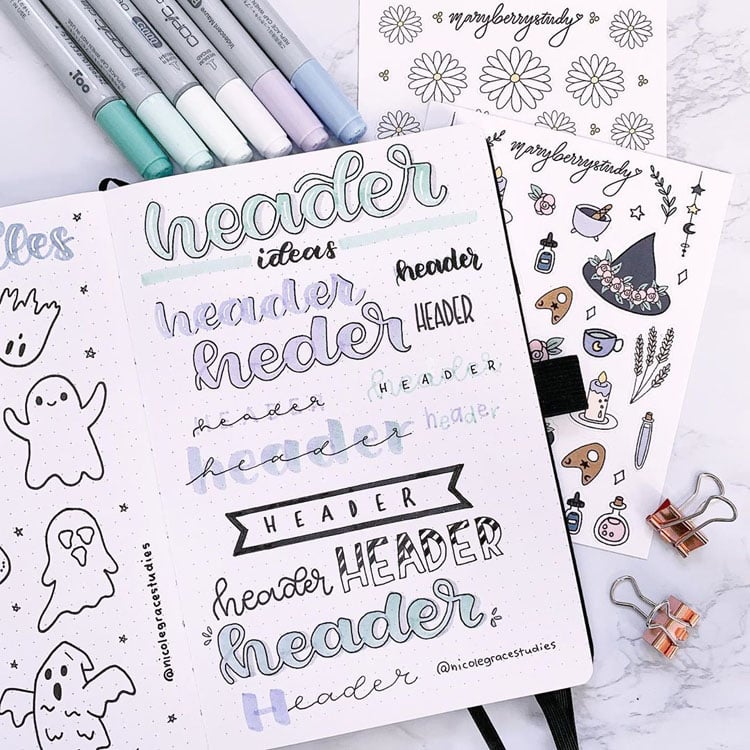 COPIC ciao
.Too
maryberrystudy
maryberrystudy
header
ideas
header
header
heder
HEADER
HEADER
header
header
HEADER
header
header
header
HEADER
header
HEADER
header
Header
@nicolegracestudies
@nicolegracestudies